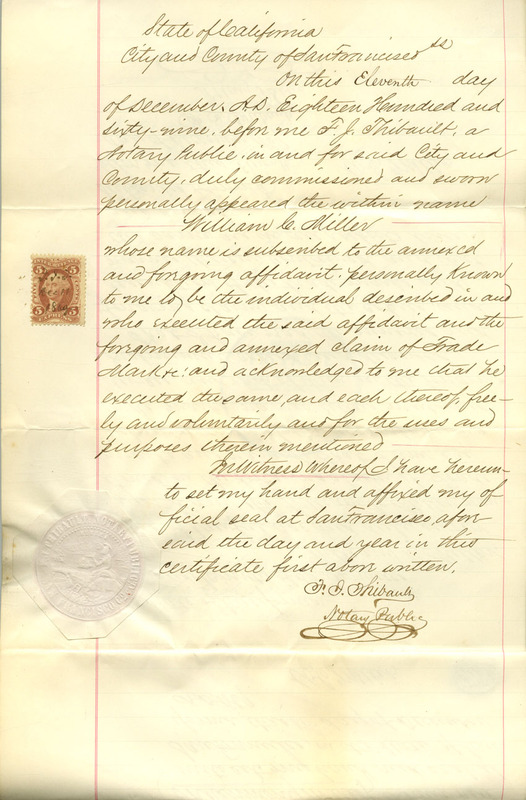 State of California
City and County of San Francisco ss
On this Eleventh day
of December, A.D. Eighteen Hundred and
sixty-nine, before me F. J. Thibault, a
Notary Public, in and for said City and
County, duly commissioned and sworn
personally appeared the within name
William C. Miller
whose name is subscribed to the annexed
and foregoing affidavit, personally known
to me to be the individual described in and
who executed the said affidavit and the
foregoing and annexed claim of Trade
Mark &c: and acknowledged to me that he
executed the same, and each thereof, free-
ly and voluntarily and for the uses and
purposes therein mentioned
In Witness Whereof, I have hereun-
to set my hand and affixed my of
ficial seal at San Francisco, afore
said the day and year in this
certificate first above written.
F. J. Thibault
Notary Public
5 5
5 5